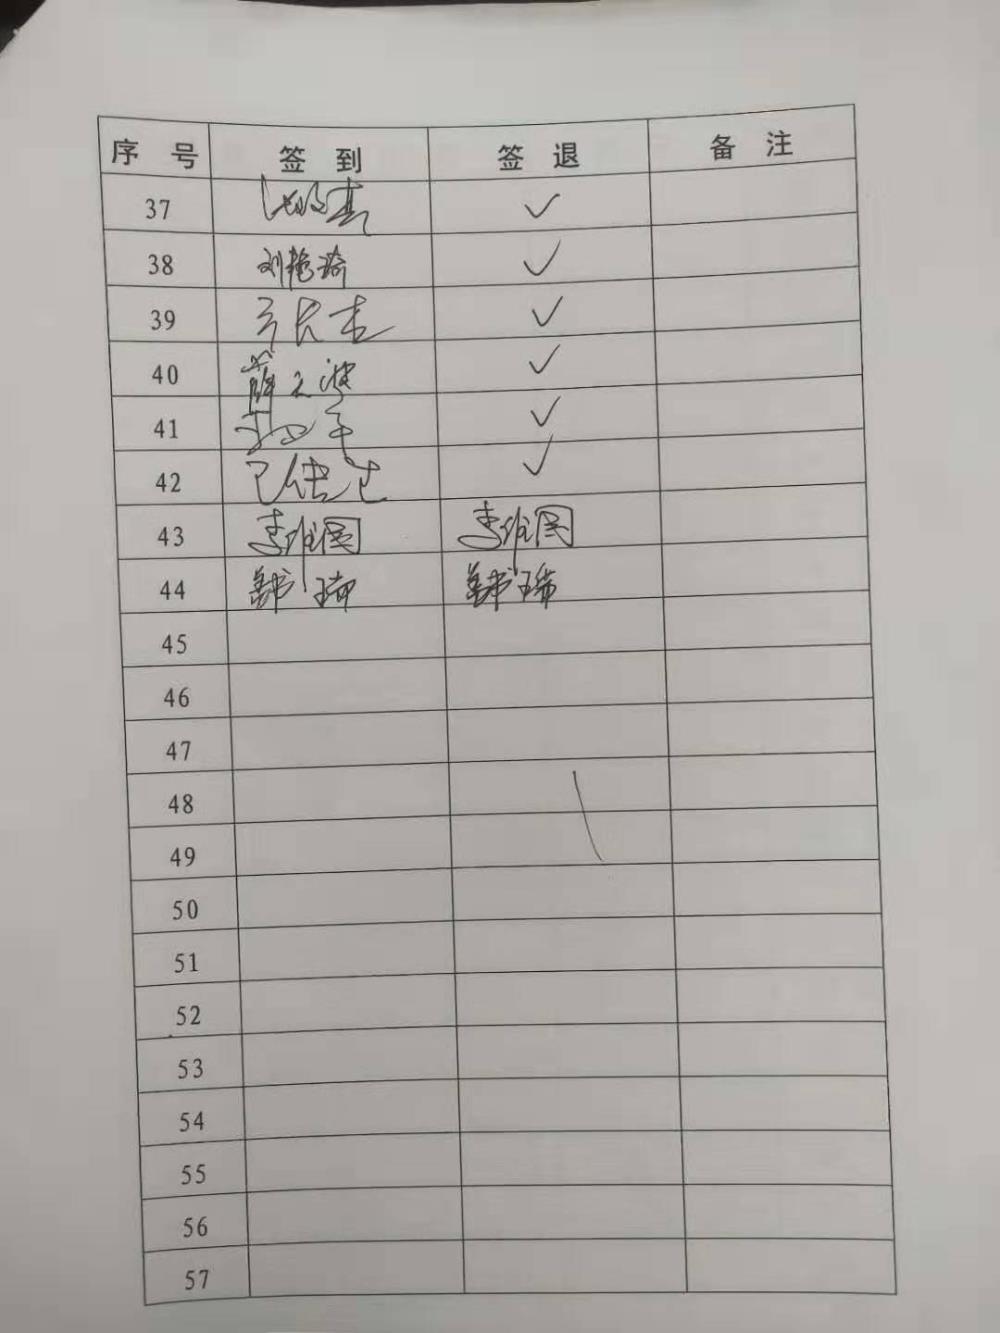 序号 签到 签退 备注
37 ✓
38 刘艳琦 ✓
39 ✓
40 ✓
41 ✓
42 ✓
43 李维国 李维国
44 韩瑞 韩瑞
45
46
47
48
49
50
51
52
53
54
55
56
57